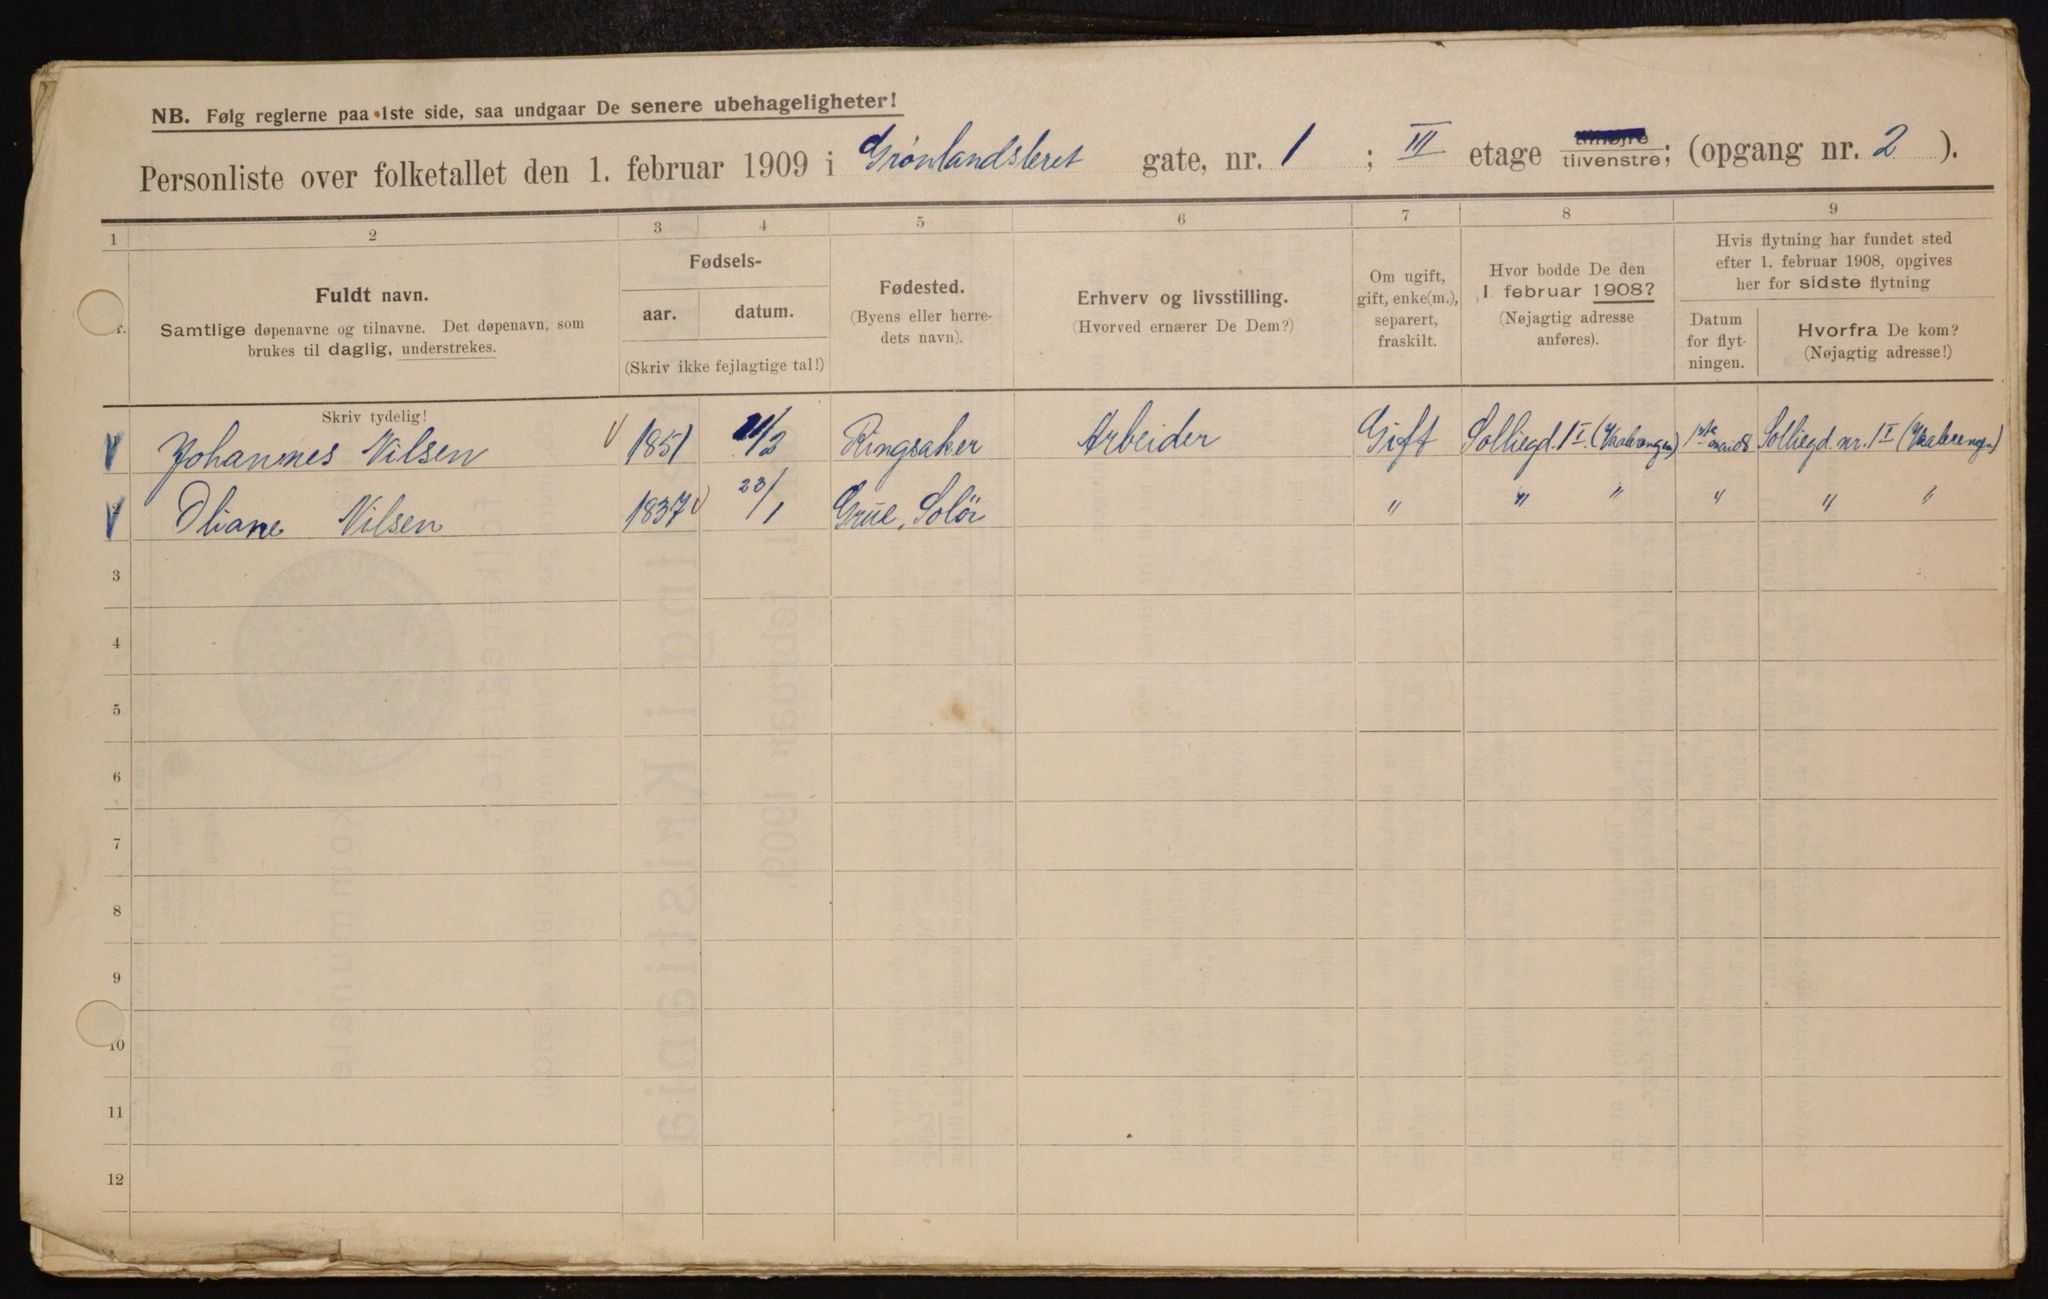 NB. Følg reglerne paa 1ste side, saa undgaar De senere ubehageligheter!
Personliste over folketallet den 1. februar 1909 i Grønlandsleret gate, nr. 1 ; III etage tilhøjre tilvenstre; (opgang nr. 2 ).
1 2 3 4 5 6 7 8 9
Fuldt navn.
Samtlige døpenavne og tilnavne. Det døpenavn, som
brukes til daglig, understrekes.
Skriv tydelig!
Fødsels-
aar. datum.
(Skriv ikke fejlagtige tal!)
Fødested.
(Byens eller herre-
dets navn).
Erhverv og livsstilling.
(Hvorved ernærer De Dem?)
Om ugift,
gift, enke(m.),
separert,
fraskilt.
Hvor bodde De den
1. februar 1908?
(Nøjagtig adresse
anføres).
Hvis flytning har fundet sted
efter 1. februar 1908, opgives
her for sidste flytning
Datum
for flyt-
ningen.
Hvorfra De kom?
(Nøjagtig adresse!)
Johannes Nilsen 1851 Ringsaker Arbeider Gift Solliegd. 1 I. (Vaalerengen) 1ste Solliegd. nr. 1 I (Vaalerengen)
Oliane Nilsen 1837 23/1 Grue, Solör " " " " " "
3
4
5
6
7
8
9
10
11
12